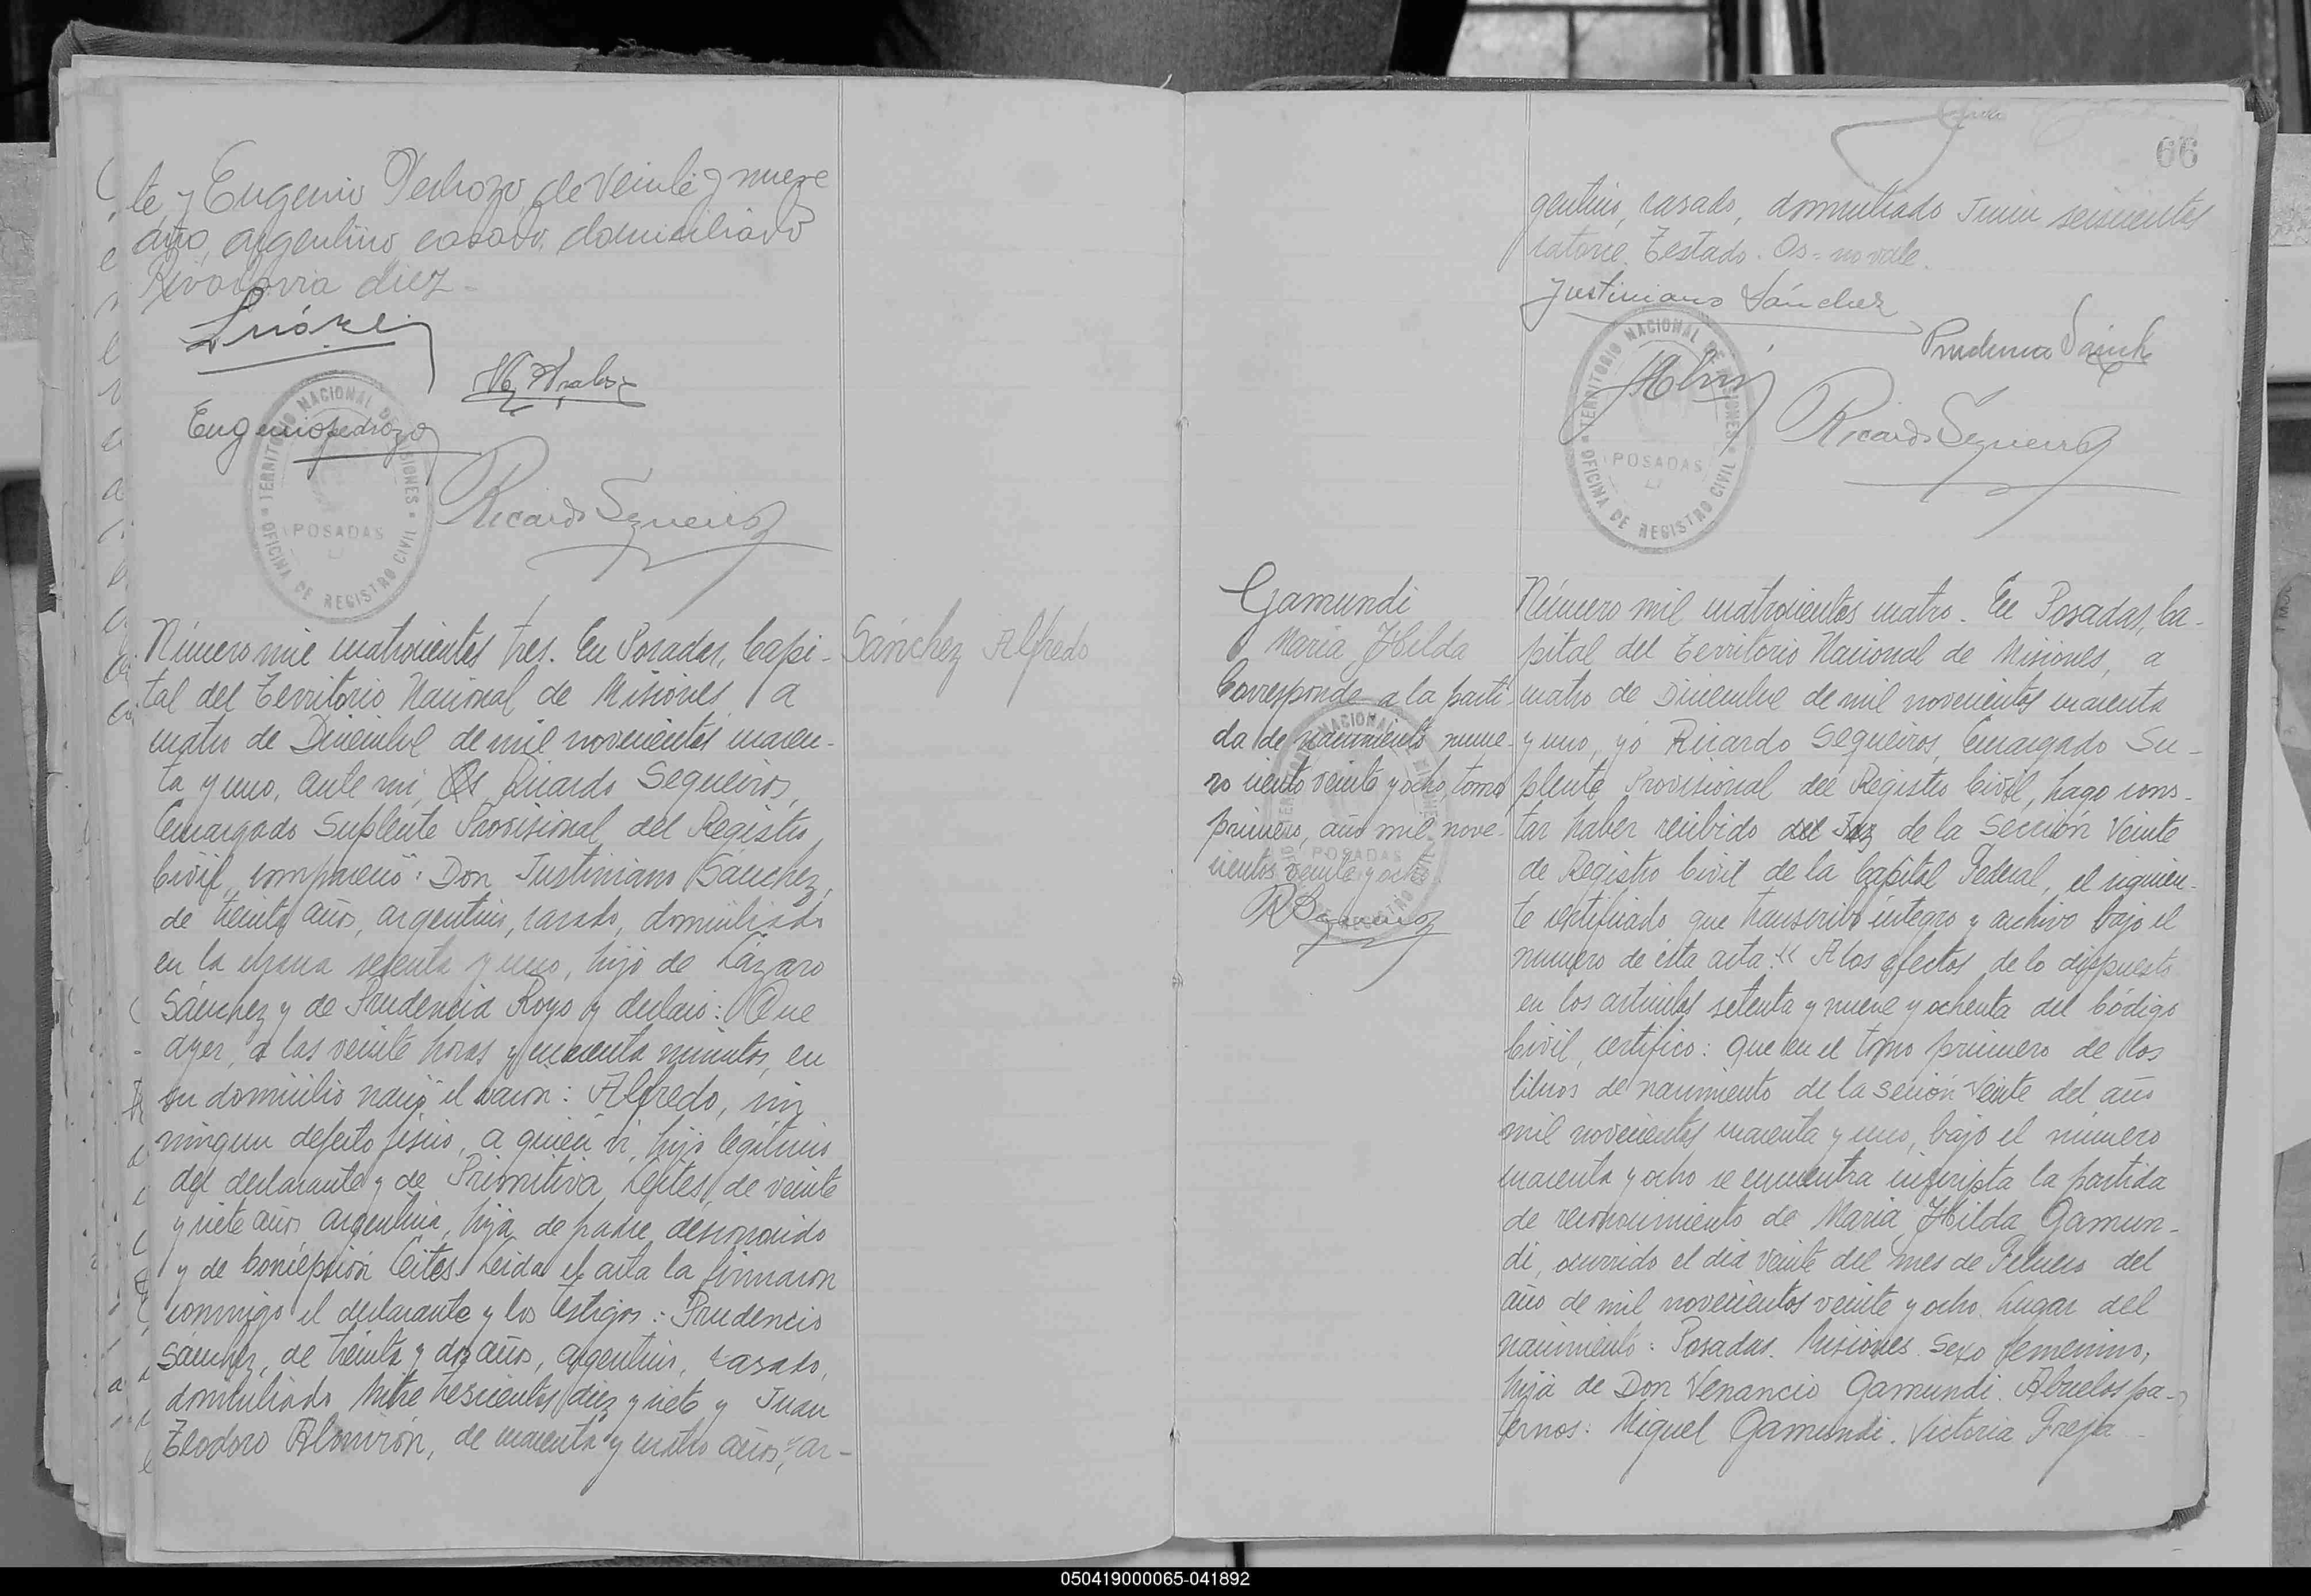 te y Eugenio Pedrozo, de veinte y nueve
año, argentino, casado, domiciliado
Rivadavia diez-
Eugenio Pedrozo
Ricardo Sequeiros
TERRITORIO NACIONAL DE MISIONES
POSADAS
OFICINA DE REGISTRO CIVIL
Sánchez Alfredo
Número mil cuatrocientos tres. En Posadas, Capi-
tal del Territorio Nacional de Misiones, a
cuatro de Diciembre de mil novecientos cuaren-
ta y uno, ante mi, Os Ricardo Sequeiros,
Encargado Suplente Provisional del Registro
Civil, compareció: Don Justiniano Sánchez,
de treinta años, argentino, casado, domiciliado
en la chacra setenta y uno, hijo de Lázaro
Sánchez y de Prudencia Royo y declaró: Que
ayer, a las veinte horas y cuarenta minutos, en
su domicilio nació el varon: Alfredo, sin
ningun defecto fisico, a quien vi, hijo legitimo
del declarante y de Primitiva Leites, de veinte
y siete años, argentina, hija de padre desconocido
y de Concepción Leites. Leida el acta la firmaron
conmigo el declarante y los testigos: Prudencio
Sánchez, de treinta y dos años, argentino, casado,
domiciliado Mitre trescientos diez y siete y Juan
Teodoro Almirón, de cuarenta y cuatro años, ar-
66
gentino, casado, domiciliado Junin seiscientos
catorce. Testado. Os= no vale.
Justiniano Sánchez
Prudencio Sánch
Ricardo Sequeiros
TERRITORIO NACIONAL DE MISIONES
POSADAS
OFICINA DE REGISTRO CIVIL
Gamundi
Maria Hilda
Corresponde a la parti-
da de nacimiento nume-
ro ciento veinte y ocho, tomo
primero, año mil nove-
cientos veinte y ocho
R Sequeiros
POSADAS
Número mil cuatrocientos cuatro. En Posadas, Ca-
pital del Territorio Nacional de Misiones, a
cuatro de Diciembre de mil novecientos cuarenta
y uno, yo Ricardo Sequeiros, Encargado Su-
plente Provisional del Registro Civil, hago cons-
tar haber recibido del Juez de la Sección Veinte
de Registro Civil de la Capital Federal, el siguien-
te certificado que transcribo integro y archivo bajo el
numero de esta acta: "A los efectos de lo dispuesto
en los articulos setenta y nueve y ochenta del Código
Civil, certifico: que en el tomo primero de los
libros de nacimiento de la sección veinte del año
mil novecientos cuarenta y uno, bajo el número
cuarenta y ocho se encuentra inscripta la partida
de reconocimiento de Maria Hilda Gamun-
di, ocurrido el dia veinte del mes de Febrero del
año de mil novecientos veinte y ocho. Lugar del
nacimiento: Posadas. Misiones. Sexo femenino,
hija de Don Venancio Gamundi. Abuelos pa-
ternos: Miguel Gamundi. Victoria Freja
050419000065-041892